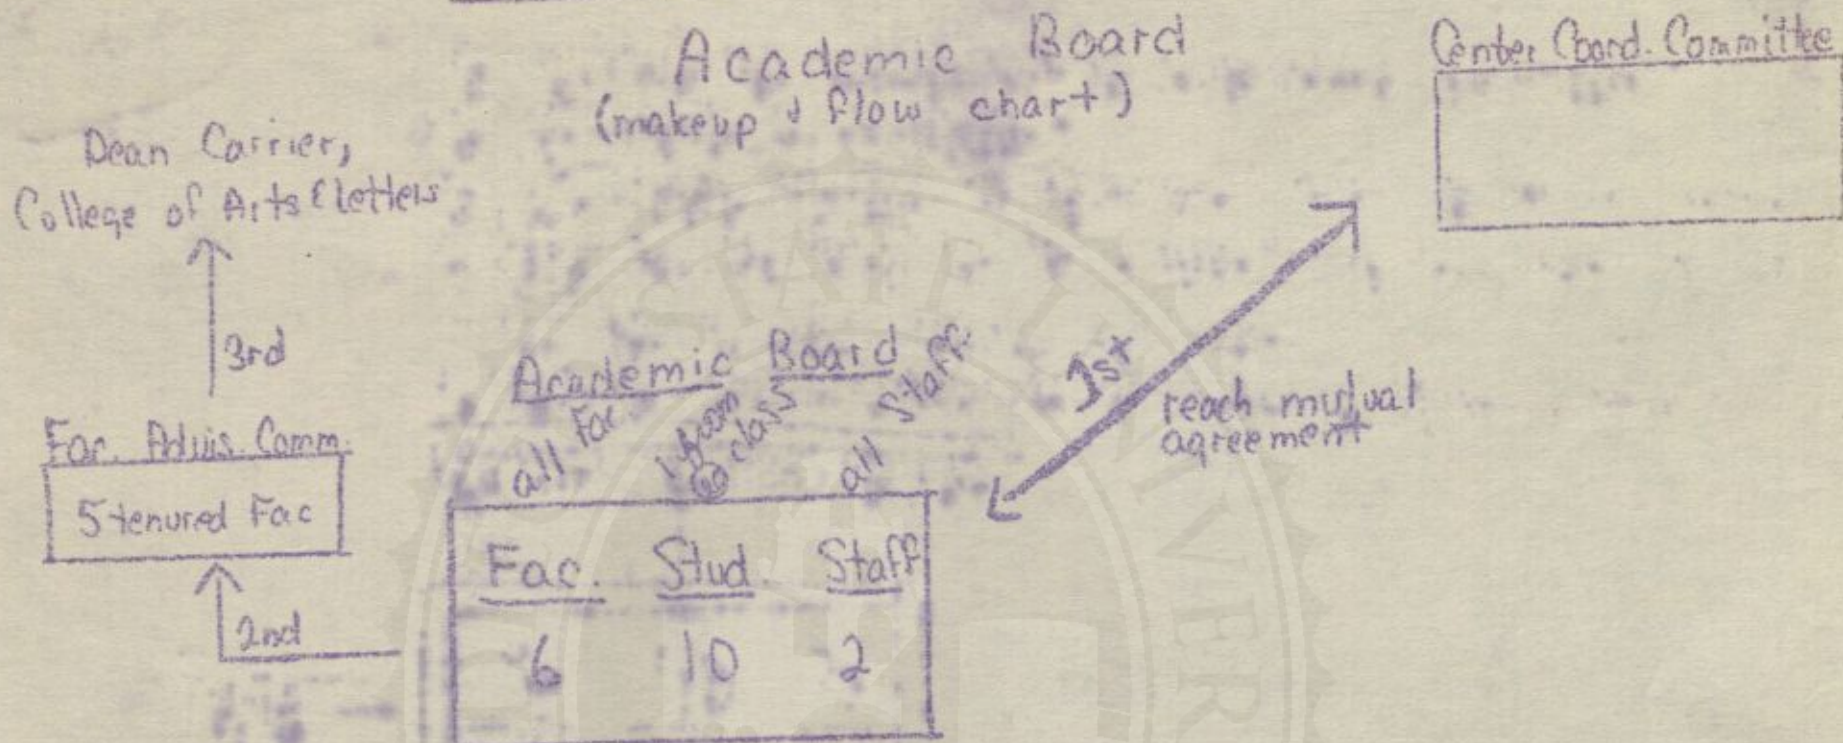 Academic Board
(makeup & flow chart)
Center Coord. Committee
Dean Carrier,
College of Arts & Letters
3rd
Fac. Advis. Comm.
5 tenured Fac
2nd
Academic Board
all Fac.
1 from
class
all Staff
Fac. Stud. Staff
6 10 2
1st
reach mutual
agreement
STATE UNIVER